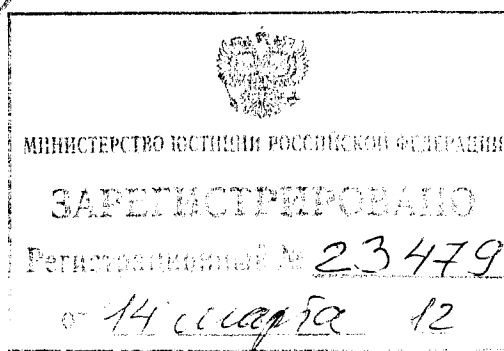 МИНИСТЕРСТВО ЮСТИЦИИ РОССИЙСКОЙ ФЕДЕРАЦИИ
ЗАРЕГИСТРИРОВАНО
Регистрационный № 23479
от 14 марта 12